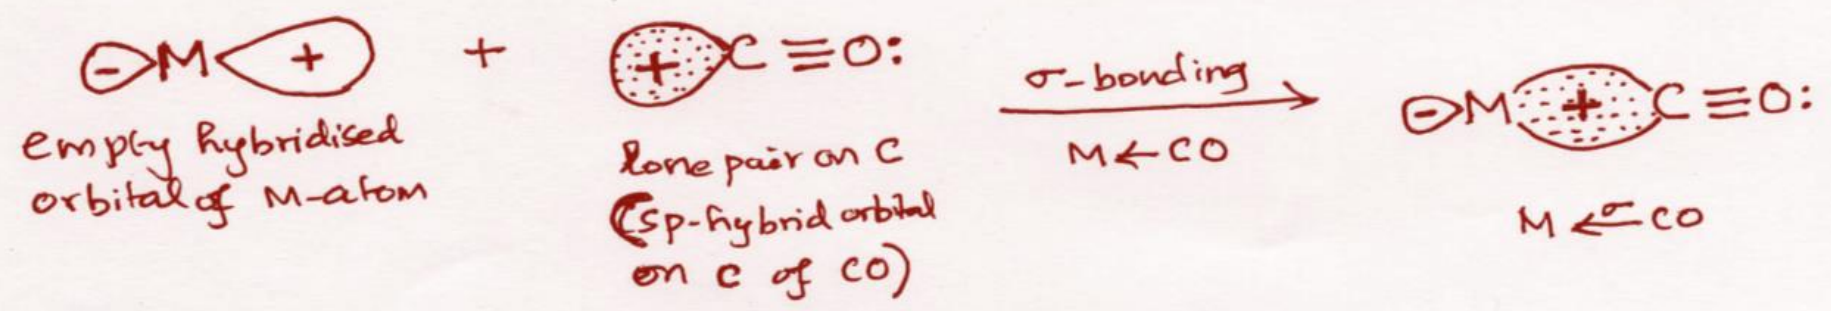 ⊖M + + + C≡O: σ-bonding ⊖M + C≡O:
M←CO
empty hybridised
orbital of M-atom
lone pair on C
(sp-hybrid orbital
on C of CO)
M ←σ CO